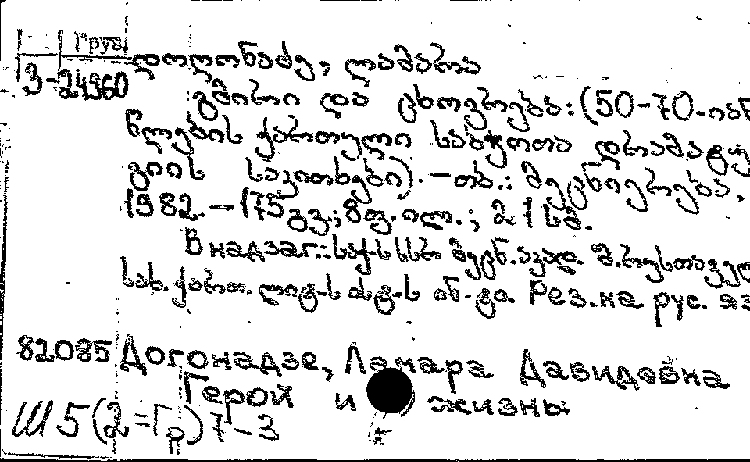 Груз.
3-24960
დოღონაძე, ლამარა
გმირი და ცხოვრება: (50-70-იან
წლების ქართული საბჭოთა დრამატურ
გიის საკითხები). — თბ.: მეცნიერება,
1982. — 175გვ.; 8ფ. ილ.; 21სმ.
В надзаг.: საქ. სსრ მეცნ. აკად. შ. რუსთაველ
სახ. ქართ. ლიტ-ს ისტ-ს ინ-ტი. Рез. на рус. яз
82085 Догонадзе, Ламара Давидовна
Герой и жизнь
Ш5(2=Гр)7-3